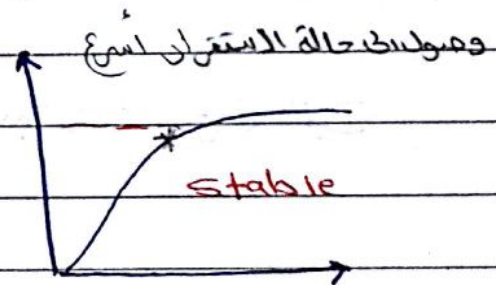 وصول الى حالة الاستقرار أسرع
stable